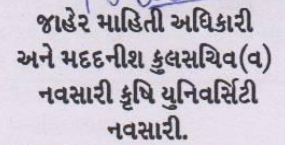 જાહેર માહિતી અધિકારી
અને મદદનીશ કુલસચિવ(વ)
નવસારી કૃષિ યુનિવર્સિટી
નવસારી.